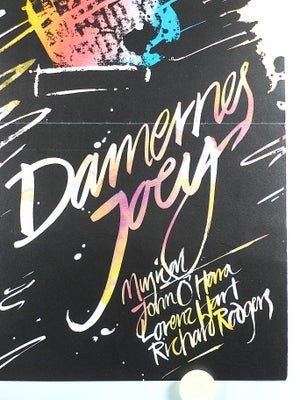 Damernes
Joey
Musical
John O'Hara
Lorenz Hart
Richard Rodgers